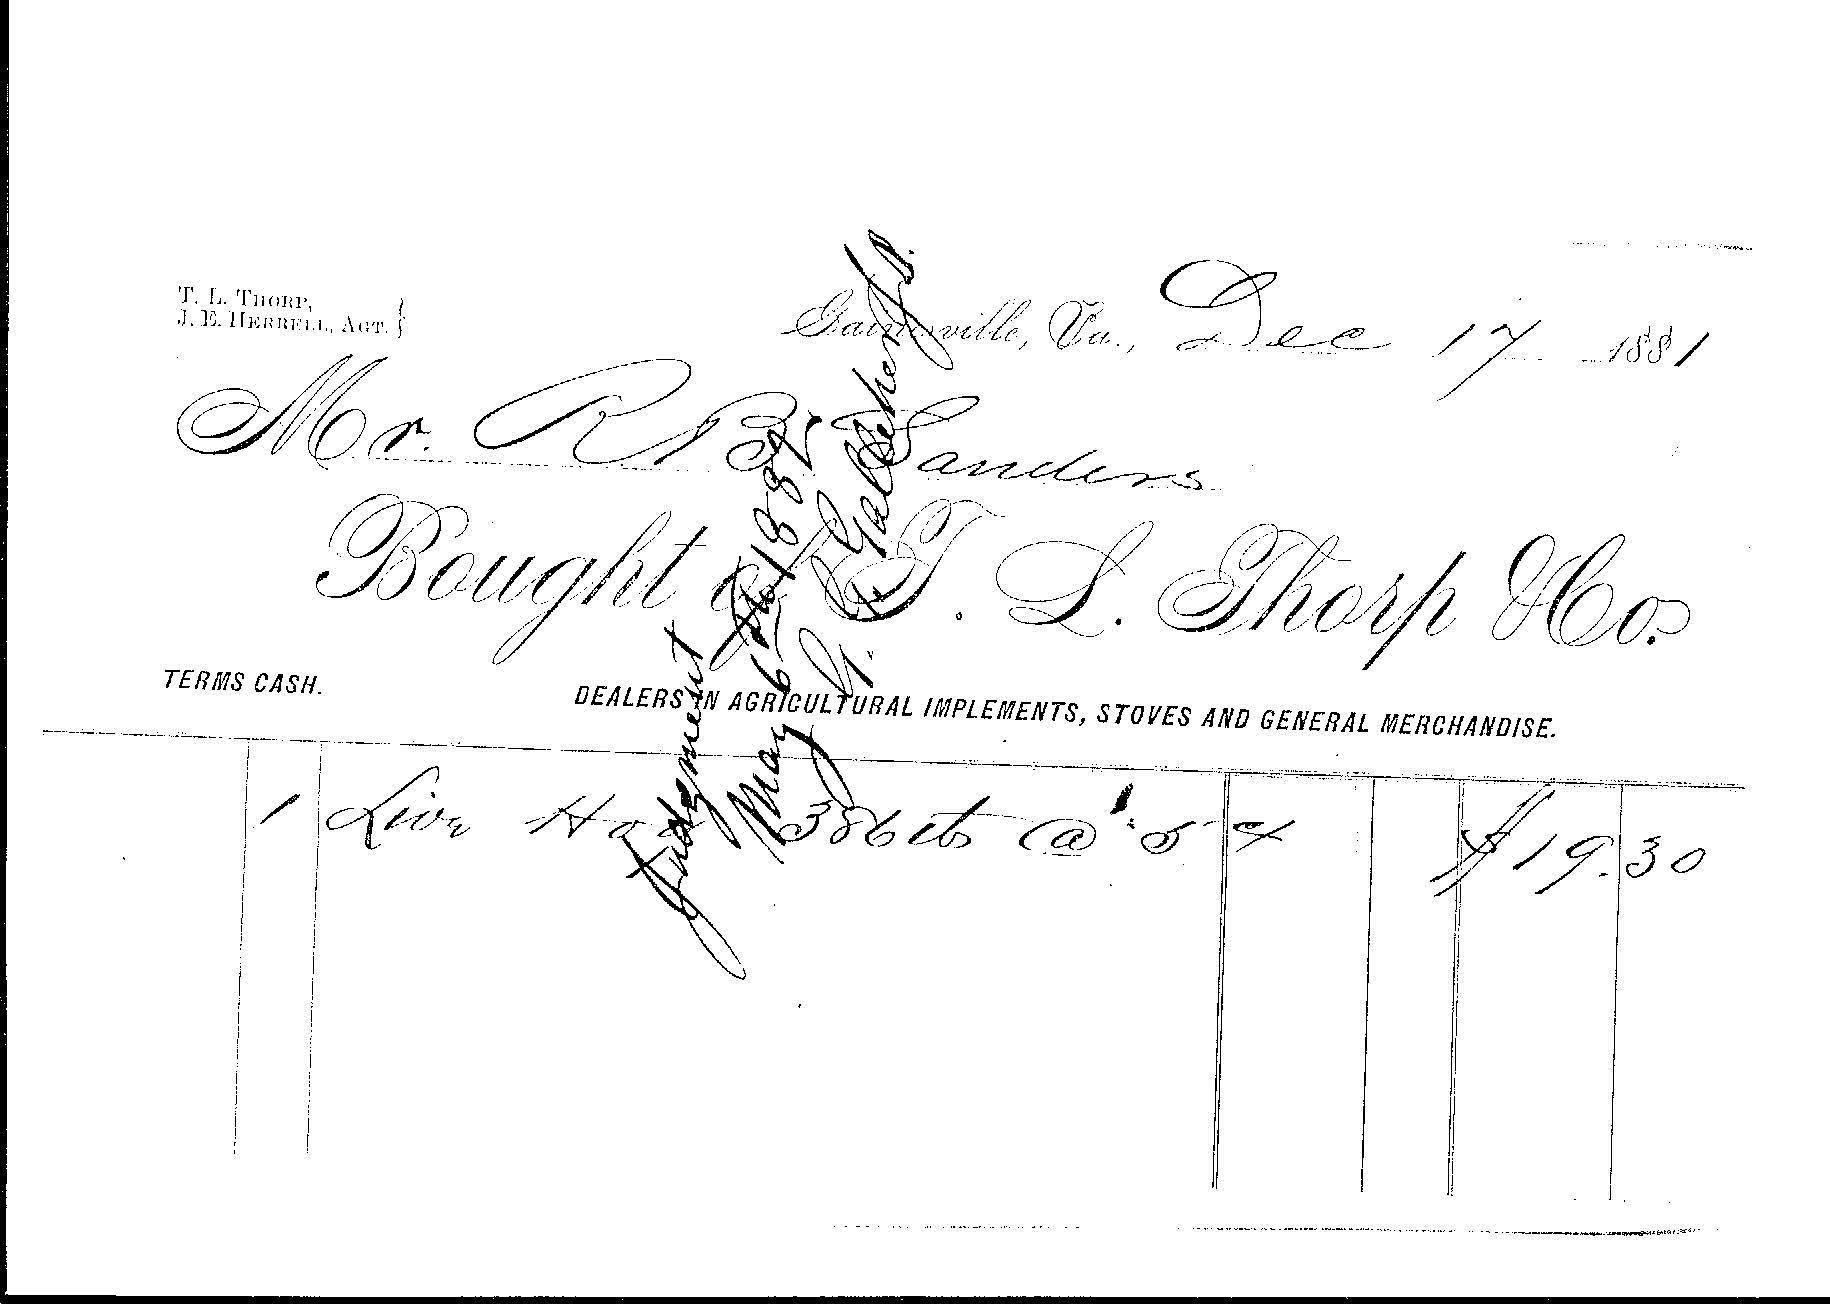 T. L. THORP,
J. E. HERRELL, AGT.
Gainesville, Va., Dec 17 1881
Mr. R B Sanders
Bought of T. L. Thorp & Co.
TERMS CASH.
DEALERS IN AGRICULTURAL IMPLEMENTS, STOVES AND GENERAL MERCHANDISE.
1 Live Hog 386 lbs @ 5 ¢ $19.30
Judgment
May 6th 1882
G. G. Galleher J.P.